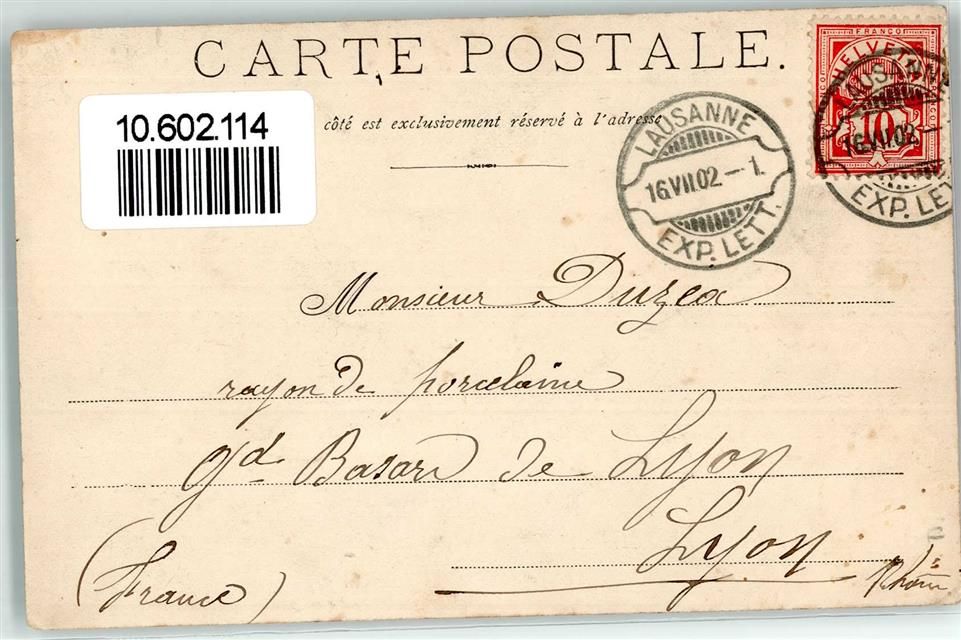 CARTE POSTALE.
10.602.114
côté est exclusivement réservé à l'adresse
LAUSANNE
16.VII.02.–1.
EXP. LETT.
FRANCO
HELVETIA
10
LAUSANNE
16.VII.02.–1
EXP. LETT
Monsieur Duzea
rayon de porcelaine
gd Basard de Lyon
Lyon
(France)
Rhône